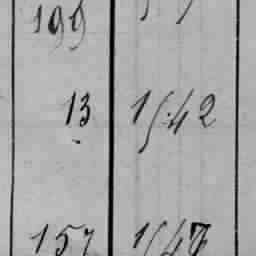 199
13 1542
157 1547